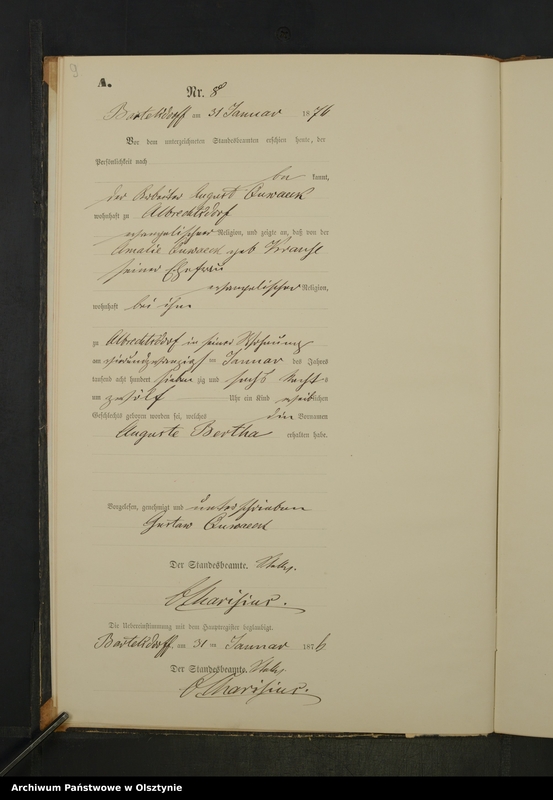 9
A.
Nr. 8
Bartelsdorff am 31 Januar 1876
Vor dem unterzeichneten Standesbeamten erschien heute, der
Persönlichkeit nach
be kannt,
der Arbeiter August
wohnhaft zu Albrechtsdorf
evangelischer Religion, und zeigte an, daß von der
Amalie geb
seiner Ehefrau
evangelischer Religion,
wohnhaft bei ihm
zu Albrechtsdorf in seiner Wohnung
am vierundzwanzigst en Januar des Jahres
tausend acht hundert sieben zig und sechs Nachts
um zwölf Uhr ein Kind weiblichen
Geschlechts geboren worden sei, welches die Vornamen
Auguste Bertha erhalten habe.
Vorgelesen, genehmigt und unterschrieben
Gustav
Der Standesbeamte.
Die Uebereinstimmung mit dem Hauptregister beglaubigt.
Bartelsdorff, am 31 en Januar 1876
Der Standesbeamte.
Archiwum Państwowe w Olsztynie